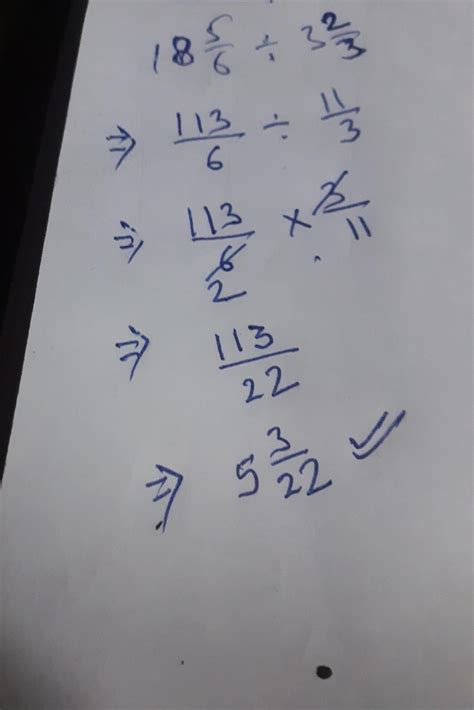 18 5/6 ÷ 3 2/3
⇒ 113/6 ÷ 11/3
⇒ 113/6 × 3/11
2
⇒ 113/22
⇒ 5 3/22 ✓